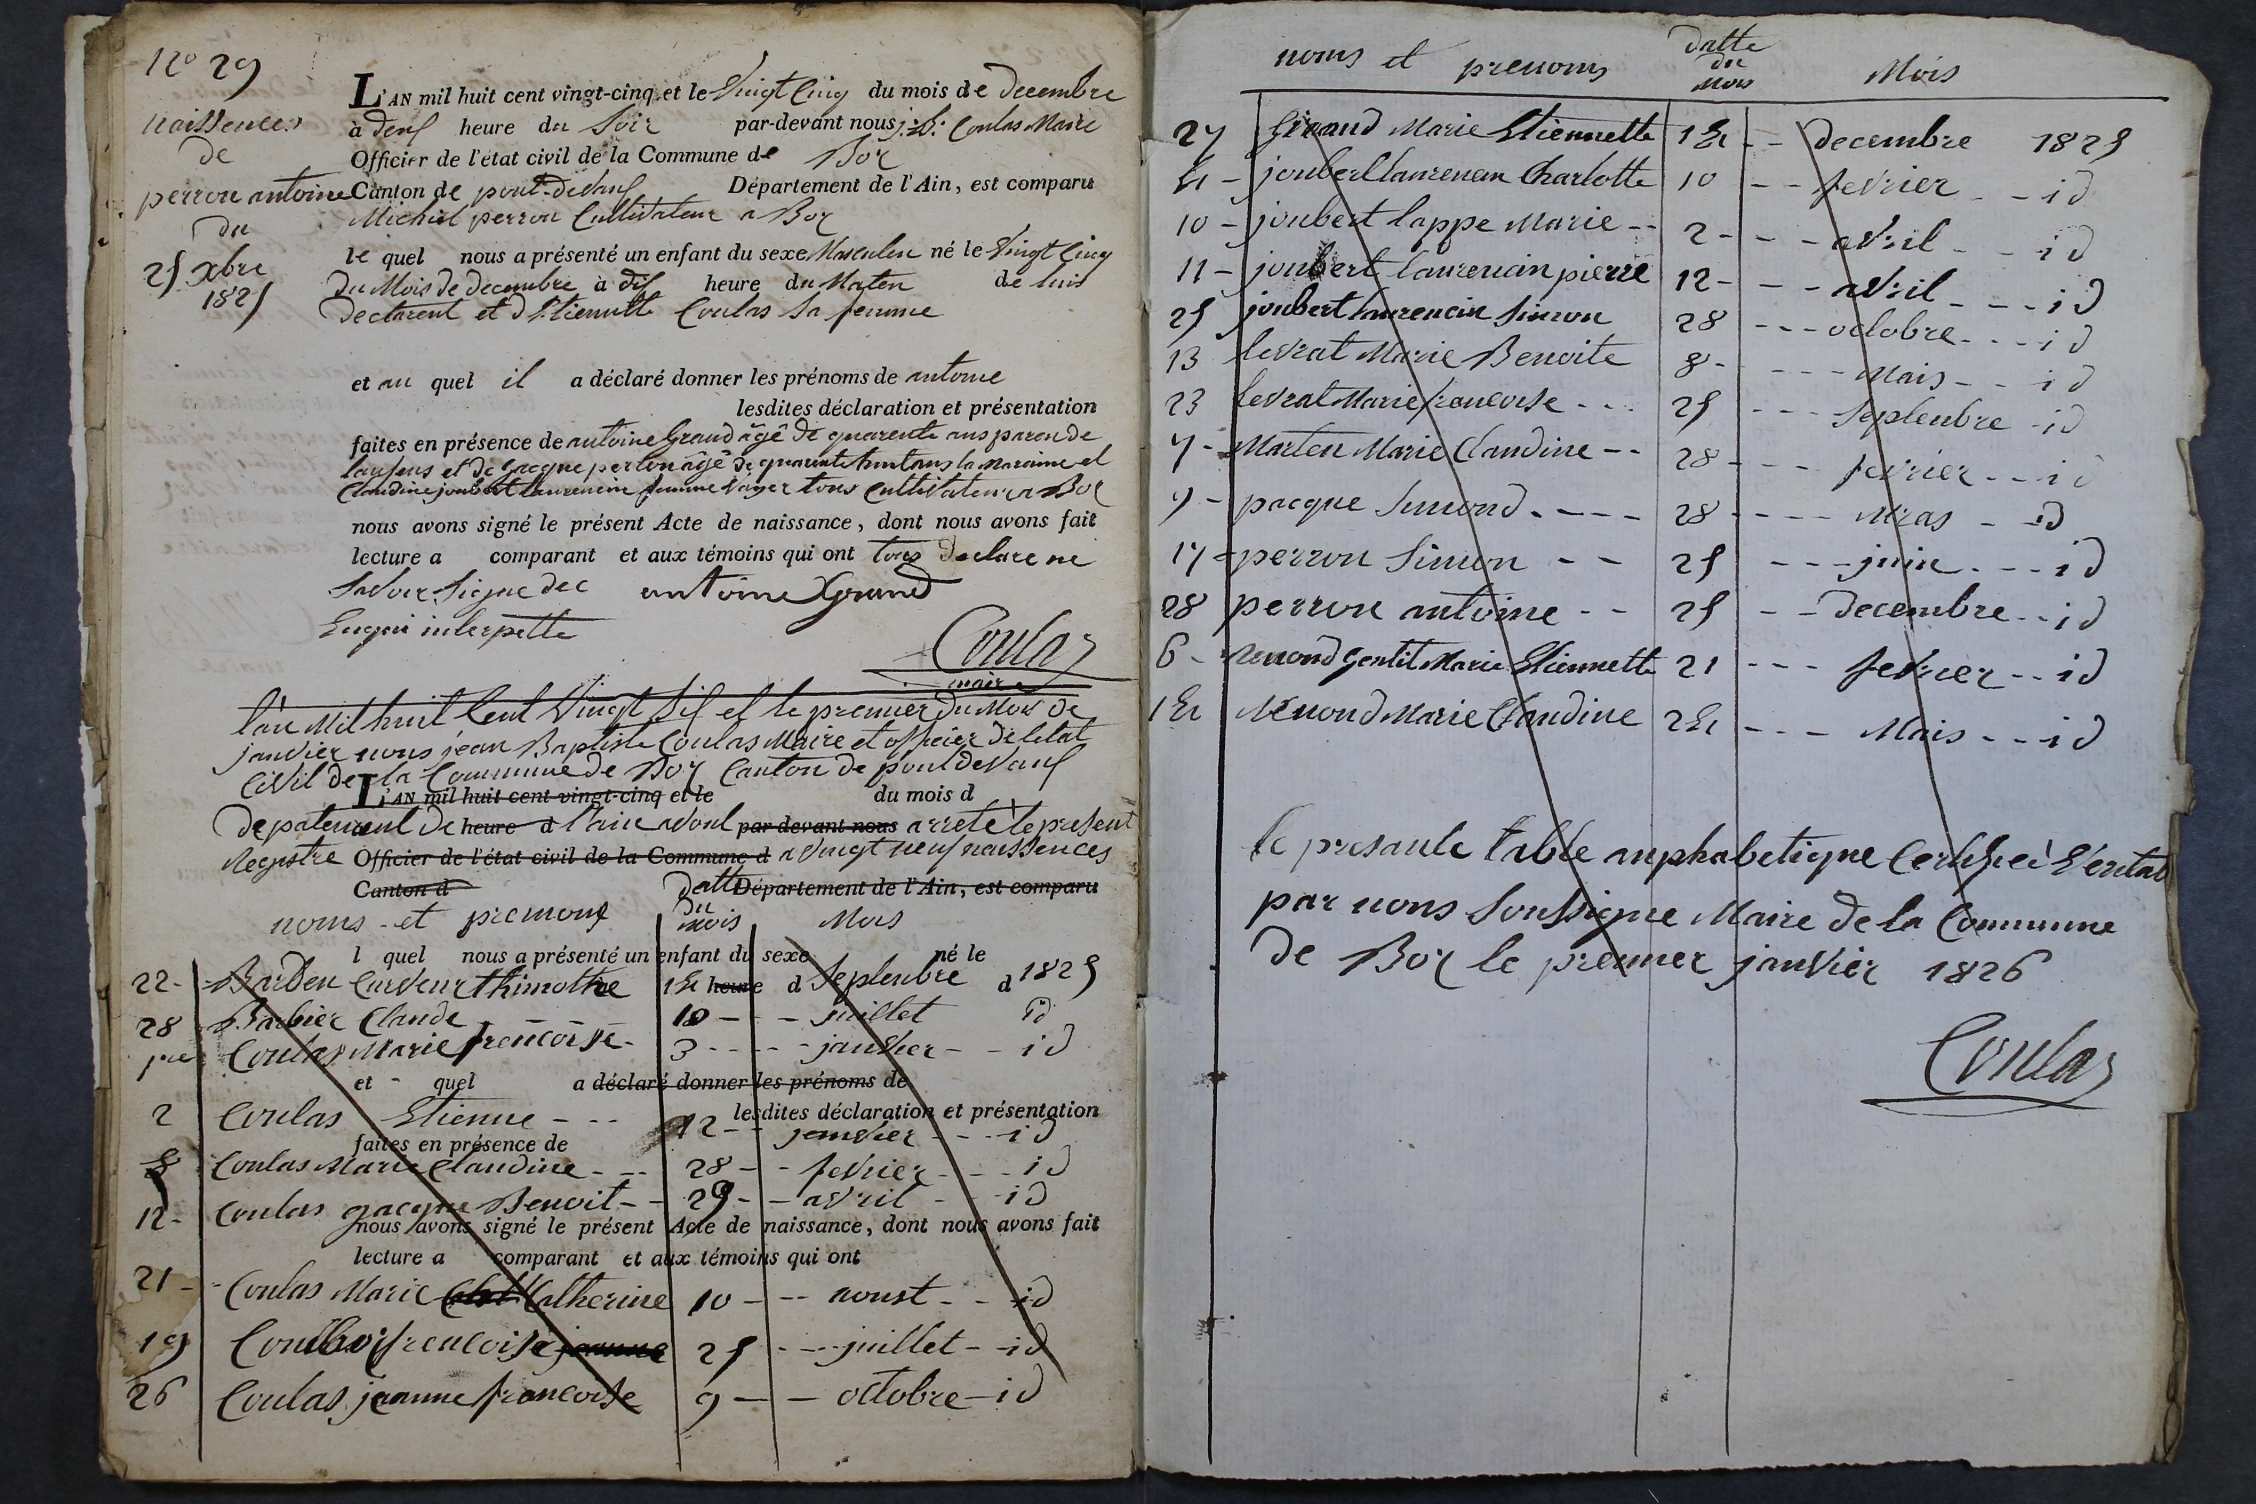 No 29
naissences
de
perron antoine
du
25 xbre
1825
L'AN mil huit cent vingt-cinq et le Vingt Cinq du mois de decembre
à deuf heure du Soir par-devant nous j. B. Coulas Maire
Officier de l'état civil de la Commune de Boz
Canton de pont-devauf Département de l'Ain, est comparu
Michel perron Cultivateur a Boz
le quel nous a présenté un enfant du sexe Masculen né le Vingt Cinq
du Mois de decembre à dif heure du Maten de luis
declarent et d'Etiennette Coulas Sa femme
et au quel il a déclaré donner les prénoms de antoine
lesdites déclaration et présentation
faites en présence de antoine Grand âgê de quarente ans paren de
et de jacque perron âgê de quarente huit ans la maraine et
Claudine joubert laurencin femme tous Cultivateur a Boz
nous avons signé le présent Acte de naissance, dont nous avons fait
lecture a comparant et aux témoins qui ont tous declare ne
Savoir Signe dec antoine Grand
Enquis interpelle
Coulas
maire
l'an Mil huit Cent Vingt Sif et le premier du Mois de
janvier nous jean Baptiste Coulas Maire et officier de letat
Civil de la Commune de Boz Canton de pont de Vauf
L'AN mil huit cent vingt-cinq et le du mois d
depatement de heure d l'ain avont par devant nous arrete le present
Registre Officier de l'état civil de la Commune d a Vingt neuf naissences
Canton d Département de l'Ain, est comparu
noms et premons datte du mois Mois
l quel nous a présenté un enfant du sexe né le
22 - Barden Curveur thimothe 14 heure d Seplenbre d 1825
28 Barbier Claude 10 - - juillet id
pre Coulas Marie frencoise - 3 - - janvier - - id
et quel a déclaré donner les prénoms de
2 Coulas Etienne - - - 12 - - janvier - - id
lesdites déclaration et présentation
faites en présence de
8 Coulas Marie Claudine - - 28 - - fevrier - - id
12 - Coulas jacque Benoit - - 29 - - avril - - id
nous avons signé le présent Acte de naissance, dont nous avons fait
lecture a comparant et aux témoins qui ont
21 - Coulas Marie Catherine 10 - - aoust - - id
19 francoise 25 - - juillet - - id
26 Coulas jeanne francoise 9 - - octobre - id
noms et prenoms datte du mois Mois
27 Girand Marie Etiennette 14 - - decembre 1825
4 - joubert laurencin Charlotte 10 - - fevrier - - id
10 - joubert lappe Marie - - 2 - - - avril - - id
11 - joubert laurencin pierre 12 - - - avril - - - id
25 joubert laurencin Simon 28 - - - octobre - - - id
13 levrat Marie Benoite 8 - - - - Mais - - id
23 levrat Marie francoise - - - 25 - - - Seplenbre - id
7 - Marten Marie Claudine - - 28 - - - fevrier - - id
9 - pacque Simond - - - - 28 - - - - Mras - - id
17 - perron Simon - - 25 - - - juin - - - id
28 perron antoine - - 25 - - decembre - - id
6 - Renond Gentil Marie Etiennette 21 - - - fevrier - - id
14 Renond Marie Claudine 24 - - - Mais - - id
le presante table anphabetique Certifieé Veritab
par nous Soussigne Maire de la Commune
de Boz le premier janvier 1826
Coulas